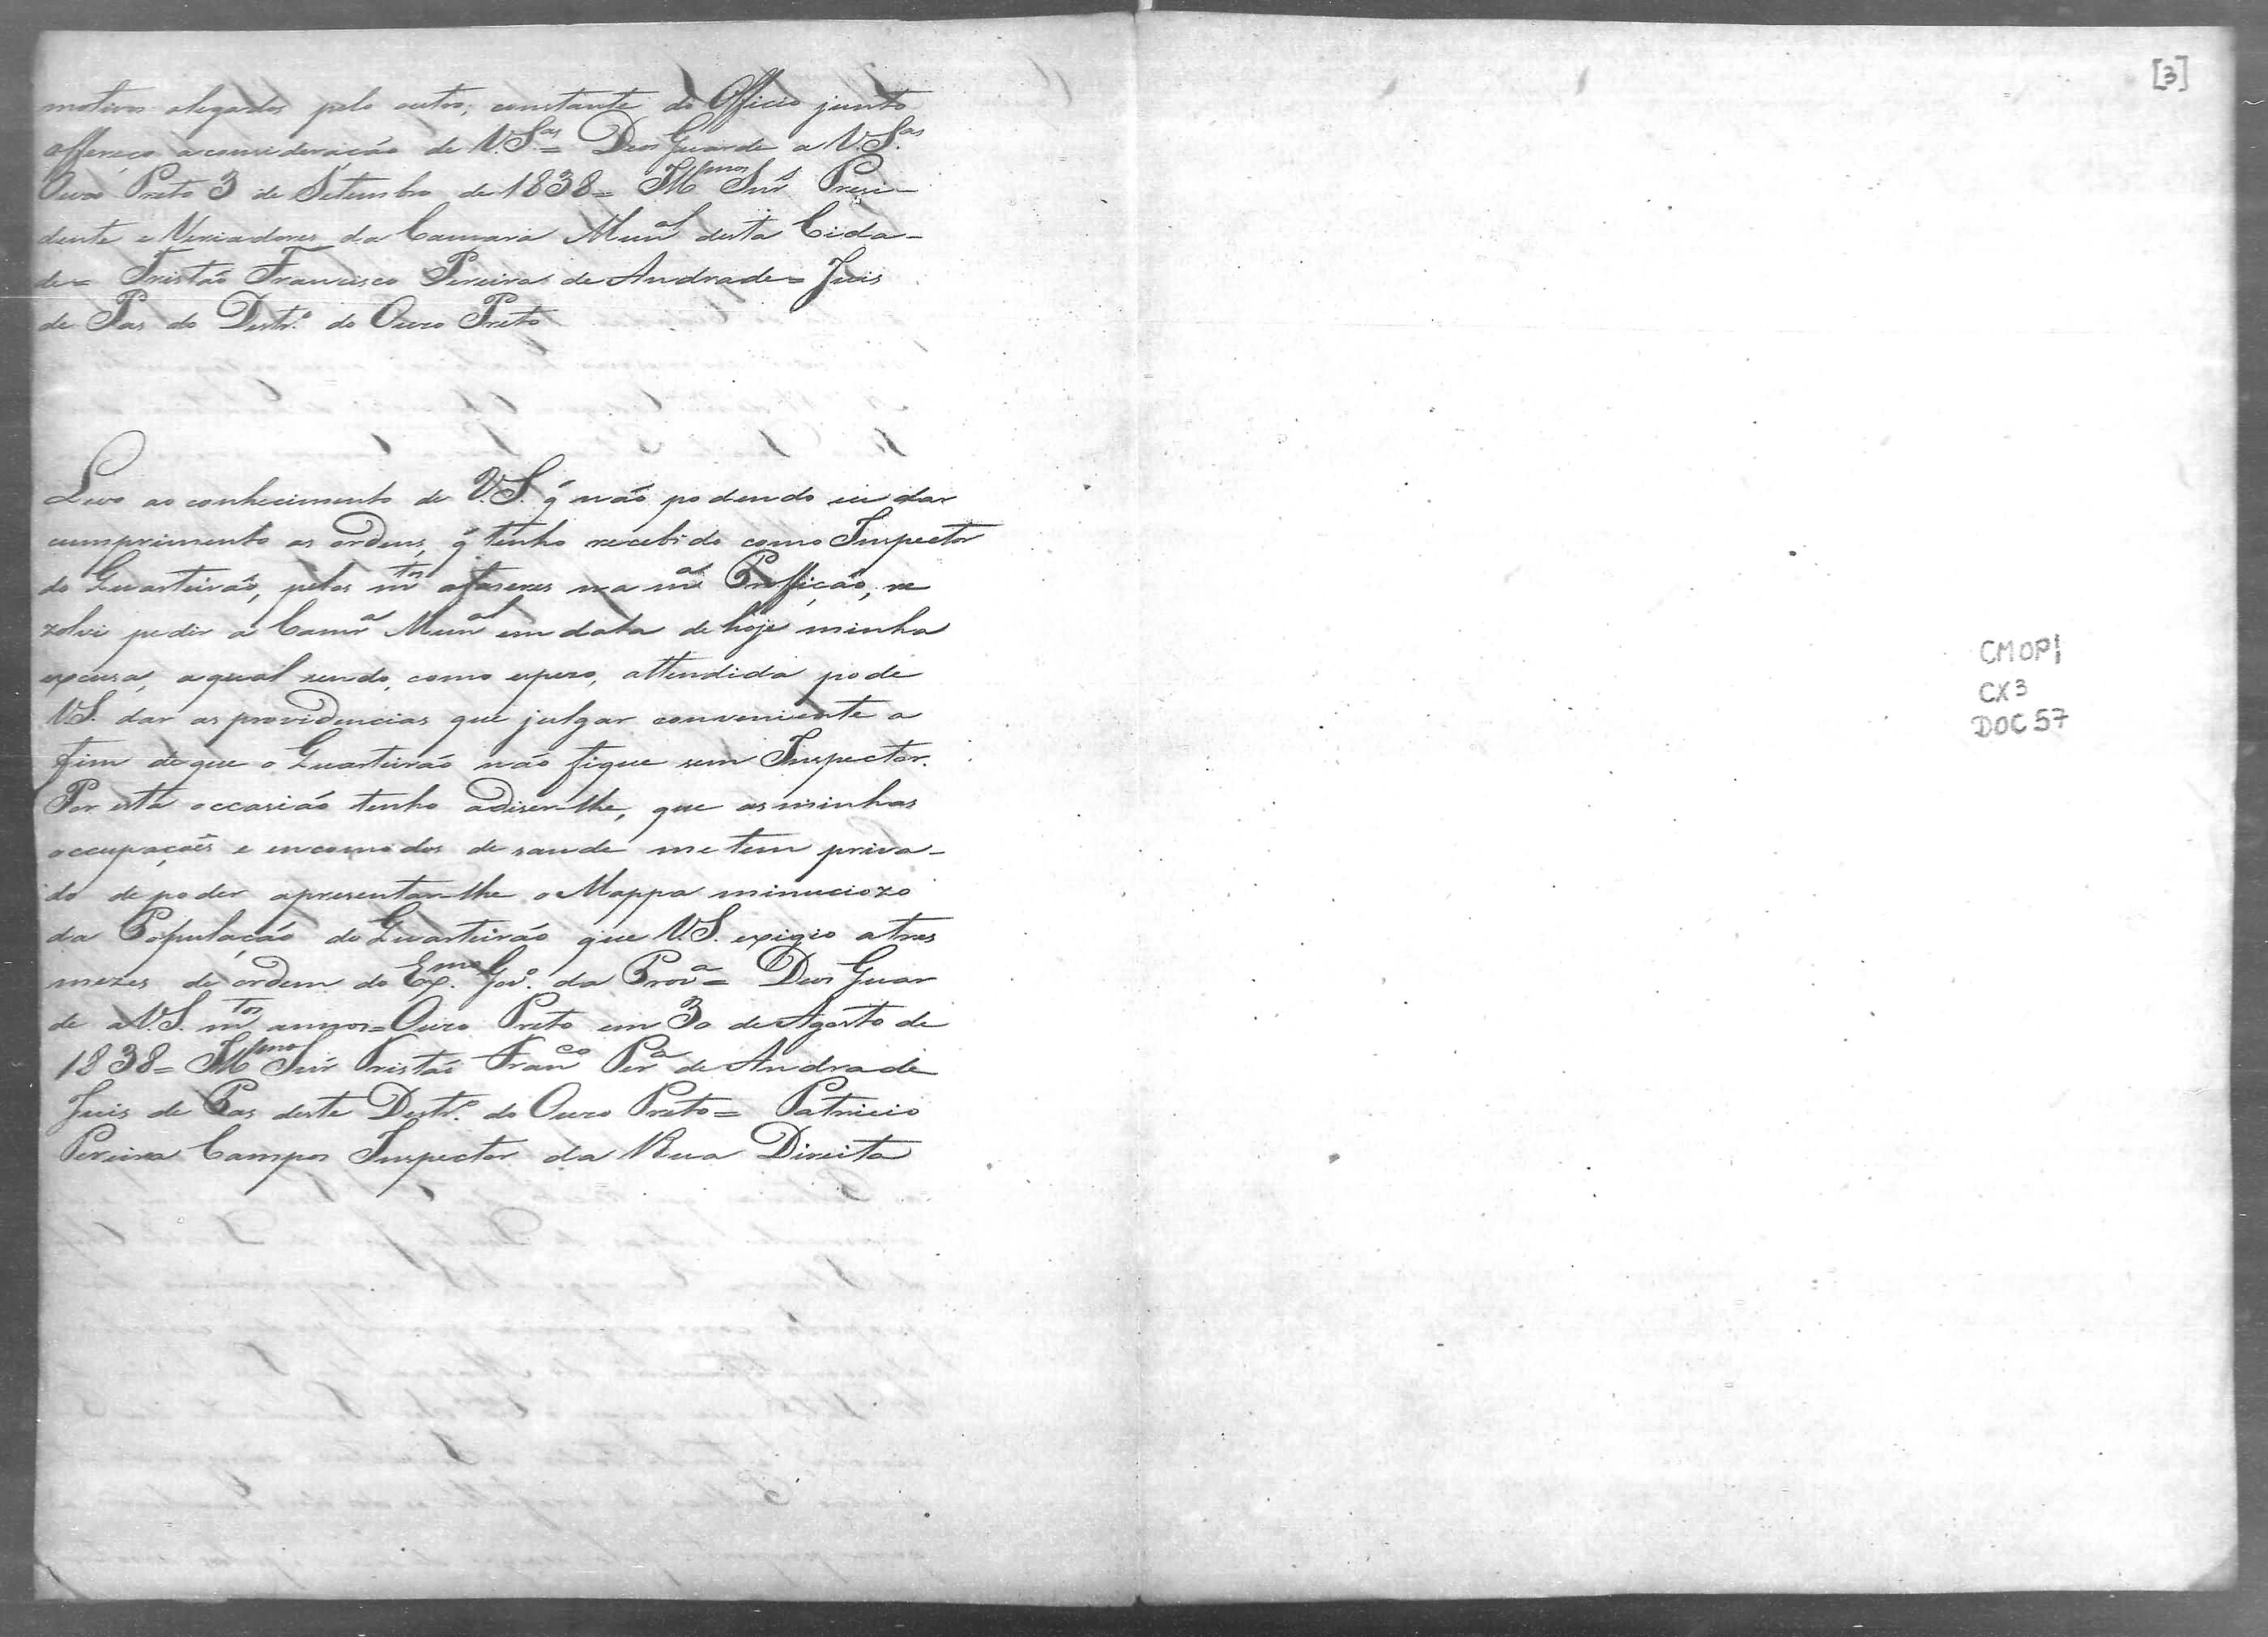 motivos alegados pelo outro, constante do Officio junto
offereço a consideração de V.S.as = Deos Guarde a V.S.as
Ouro Preto 3 de Setembro de 1838 = Illmos Snrs Presi-
dente e Veriadores da Camara Munal desta Cida-
de = Tristão Francisco Pereira de Andrade = Juis
de Pas do Destr.o do Ouro Preto
Levo ao conhecimento de V.S. q̃ não podendo eu dar
cumprimento as ordens, q̃ tenho recebido como Inspector
do Quarteirão, pelos mtos afaseres na ma Proffição, re
zolvi pedir a Camra Munal em data de hoje minha
excusa, a qual sendo, como espero, attendida pode
V.S. dar as providencias que julgar conveniente a
fim de que o Quarteirão não fique sem Inspector.
Por esta occasião tenho a diser-lhe, que as minhas
occupações e encomodos de saude me tem priva-
do de poder apresentar-lhe o Mappa minuciozo
da População do Quarteirão que V.S. exigio a tres
mezes de ordem do Ex.mo Gov.o da Prova = Deos Guar
de a V.S. mtos annos = Ouro Preto em 30 de Agosto de
1838 = Illmo Snr Tristão Franco Pera de Andrade
Juis de Pas deste Destr.o do Ouro Preto = Patricio
Pereira Campos Inspector da Rua Direita
[3]
CMOP1
CX3
DOC 57